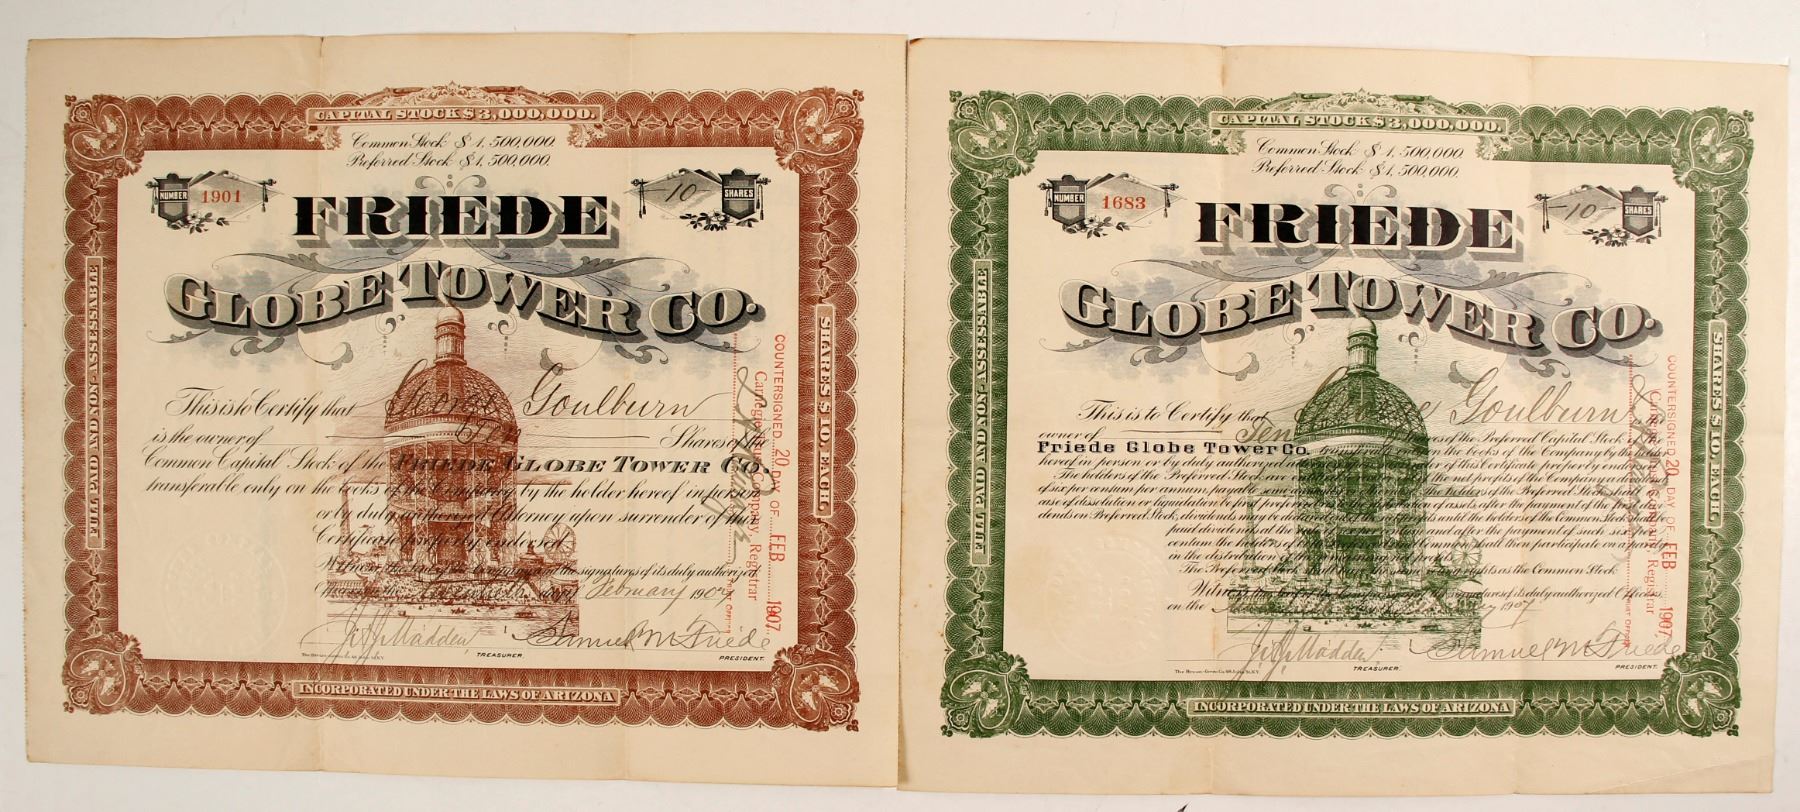 CAPITAL STOCK $3,000,000.
Common Stock $1,500,000.
Preferred Stock $1,500,000.
NUMBER 1901
10 SHARES
FRIEDE
GLOBE TOWER CO.
This is to Certify that George Goulburn
is the owner of Shares of the
Common Capital Stock of the FRIEDE GLOBE TOWER CO.
transferable only on the books of the Company by the holder hereof in person
or by duly authorized Attorney upon surrender of this
Certificate properly endorsed.
Witness the Seal of the Company and the signatures of its duly authorized
Officers this the day of February 1907
TREASURER
Samuel M Friede
PRESIDENT.
COUNTERSIGNED 20 DAY OF FEB 1907
Carnegie Trust Company, Registrar
FULL PAID AND NON-ASSESSABLE
SHARES $10. EACH.
INCORPORATED UNDER THE LAWS OF ARIZONA
CAPITAL STOCK $3,000,000.
Common Stock $1,500,000.
Preferred Stock $1,500,000.
NUMBER 1683
10 SHARES
FRIEDE
GLOBE TOWER CO.
This is to Certify that George Goulburn
owner of Ten Shares of the Preferred Capital Stock of the
Friede Globe Tower Co. transferable on the books of the Company by the holder
hereof in person or by duly authorized of this Certificate properly endorsed
The holders of the Preferred Stock are the net profits of the Company a dividend
of six per centum per annum, payable the holders of the Preferred Stock shall in
case of dissolution or liquidation be first of assets, after the payment of the
dends on Preferred Stock, dividends may be until the holders of the Common Stock shall be
paid dividends at the and after the payment of such six per
centum the shall then participate
in the distribution of the
The Preferred Stock shall as the Common Stock
Witness the Seal of the signatures of its duly authorized Officers
on the 1907
TREASURER.
Samuel M Friede
PRESIDENT
COUNTERSIGNED 20 DAY OF FEB 1907
Registrar
FULL PAID AND NON-ASSESSABLE
SHARES $10. EACH.
INCORPORATED UNDER THE LAWS OF ARIZONA